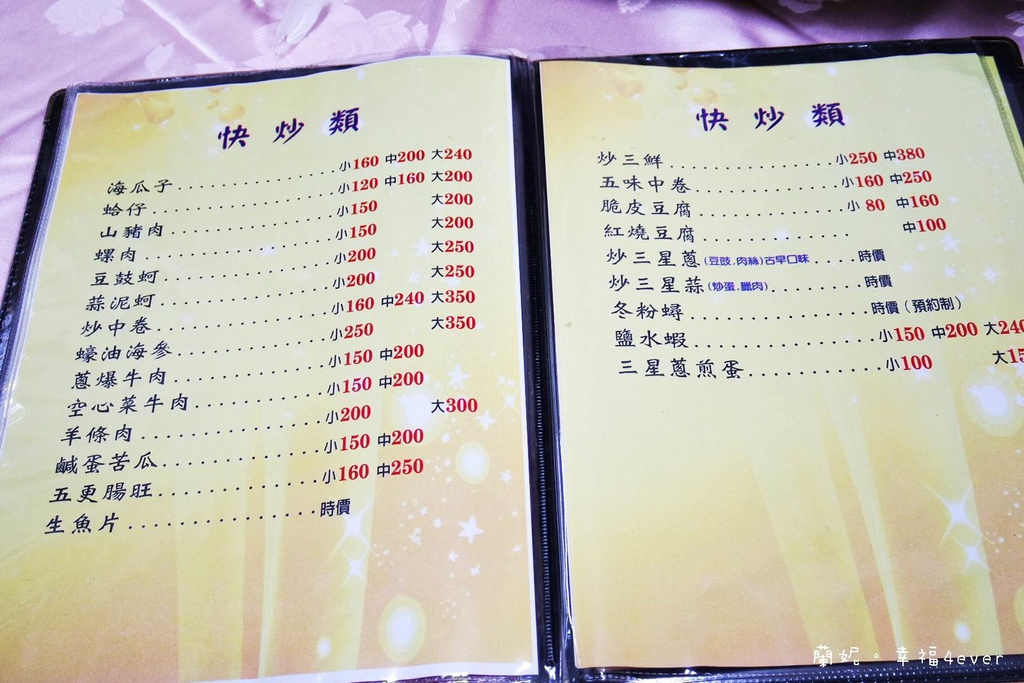 快炒類
海瓜子................小160 中200 大240
蛤仔..................小120 中160 大200
山豬肉................小150 大200
螺肉..................小150 大200
豆鼓蚵................小200 大250
蒜泥蚵................小200 大250
炒中卷................小160 中240 大350
蠔油海參..............小250 大350
蔥爆牛肉..............小150 中200
空心菜牛肉............小150 中200
羊條肉................小200 大300
鹹蛋苦瓜..............小150 中200
五更腸旺..............小160 中250
生魚片................時價
快炒類
炒三鮮................小250 中380
五味中卷..............小160 中250
脆皮豆腐..............小 80 中160
紅燒豆腐.............. 中100
炒三星蔥(豆豉.肉絲)古早口味.....時價
炒三星蒜(炒蛋.臘肉).........時價
冬粉蟳................時價(預約制)
鹽水蝦................小150 中200 大240
三星蔥煎蛋............小100 大15
蘭妮。幸福4ever